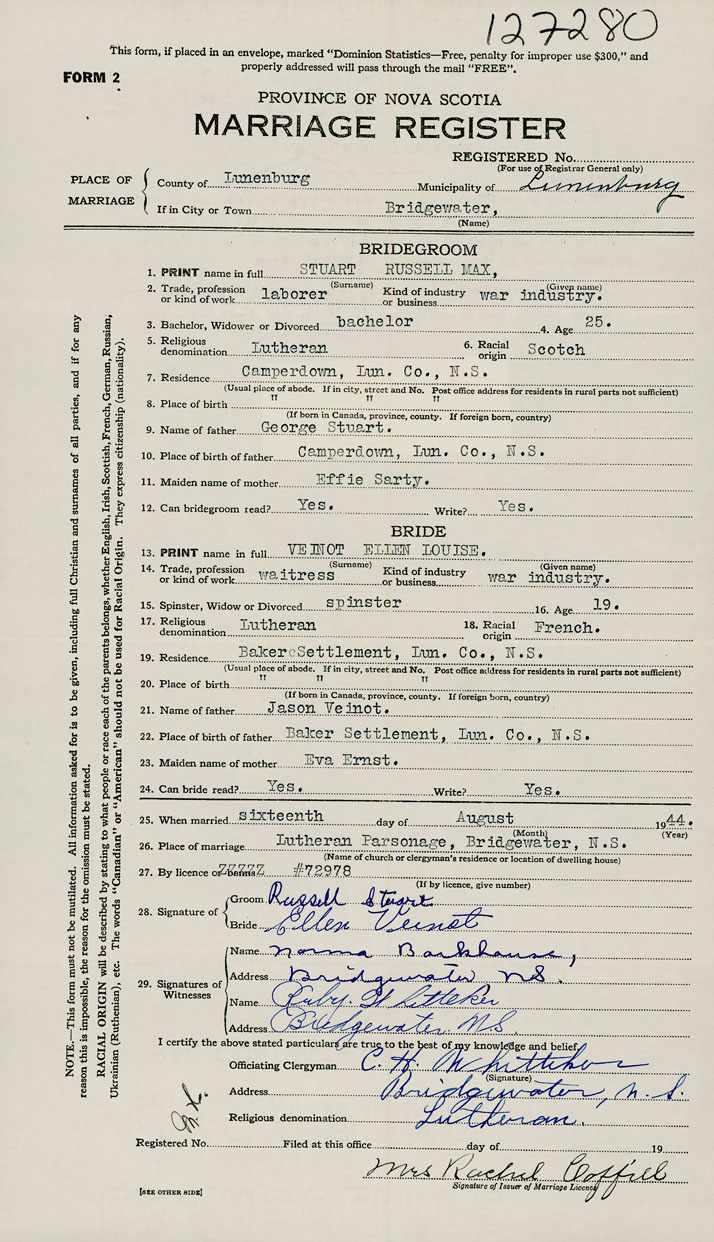 127280
This form, if placed in an envelope, marked "Dominion Statistics—Free, penalty for improper use $300," and
properly addressed will pass through the mail "FREE".
FORM 2
PROVINCE OF NOVA SCOTIA
MARRIAGE REGISTER
REGISTERED No.
(For use of Registrar General only)
PLACE OF MARRIAGE
County of Lunenburg Municipality of Lunenburg
If in City or Town Bridgewater,
(Name)
BRIDEGROOM
1. PRINT name in full STUART RUSSELL MAX,
(Surname) (Given name)
2. Trade, profession or kind of work laborer Kind of industry or business war industry.
3. Bachelor, Widower or Divorced bachelor 4. Age 25.
5. Religious denomination Lutheran 6. Racial origin Scotch
7. Residence Camperdown, Lun. Co., N.S.
(Usual place of abode. If in city, street and No. Post office address for residents in rural parts not sufficient)
8. Place of birth " " "
(If born in Canada, province, county. If foreign born, country)
9. Name of father George Stuart.
10. Place of birth of father Camperdown, Lun. Co., N.S.
11. Maiden name of mother Effie Sarty.
12. Can bridegroom read? Yes. Write? Yes.
BRIDE
13. PRINT name in full VEINOT ELLEN LOUISE.
(Surname) (Given name)
14. Trade, profession or kind of work waitress Kind of industry or business war industry.
15. Spinster, Widow or Divorced spinster 16. Age 19.
17. Religious denomination Lutheran 18. Racial origin French.
19. Residence Baker Settlement, Lun. Co., N.S.
(Usual place of abode. If in city, street and No. Post office address for residents in rural parts not sufficient)
20. Place of birth " " "
(If born in Canada, province, county. If foreign born, country)
21. Name of father Jason Veinot.
22. Place of birth of father Baker Settlement, Lun. Co., N.S.
23. Maiden name of mother Eva Ernst.
24. Can bride read? Yes. Write? Yes.
25. When married sixteenth day of August 1944.
(Month) (Year)
26. Place of marriage Lutheran Parsonage, Bridgewater, N.S.
(Name of church or clergyman's residence or location of dwelling house)
27. By licence or banns ZZZZZ #72978
(If by licence, give number)
28. Signature of
Groom Russell Stuart
Bride Ellen Veinot
29. Signatures of Witnesses
Name Norma Barkhouse,
Address Bridgewater N.S.
Name Ruby Whitteker
Address Bridgewater N.S.
I certify the above stated particulars are true to the best of my knowledge and belief.
Officiating Clergyman C. H. Whitteker
(Signature)
Address Bridgewater, N.S.
Religious denomination Lutheran.
Registered No. Filed at this office day of 19
Mrs Rachel Coffill
Signature of Issuer of Marriage Licence
[SEE OTHER SIDE]
NOTE.—This form must not be mutilated. All information asked for is to be given, including full Christian and surnames of all parties, and if for any
reason this is impossible, the reason for the omission must be stated.
RACIAL ORIGIN will be described by stating to what people or race each of the parents belongs, whether English, Irish, Scottish, French, German, Russian,
Ukrainian (Ruthenian), etc. The words "Canadian" or "American" should not be used for Racial Origin. They express citizenship (nationality).